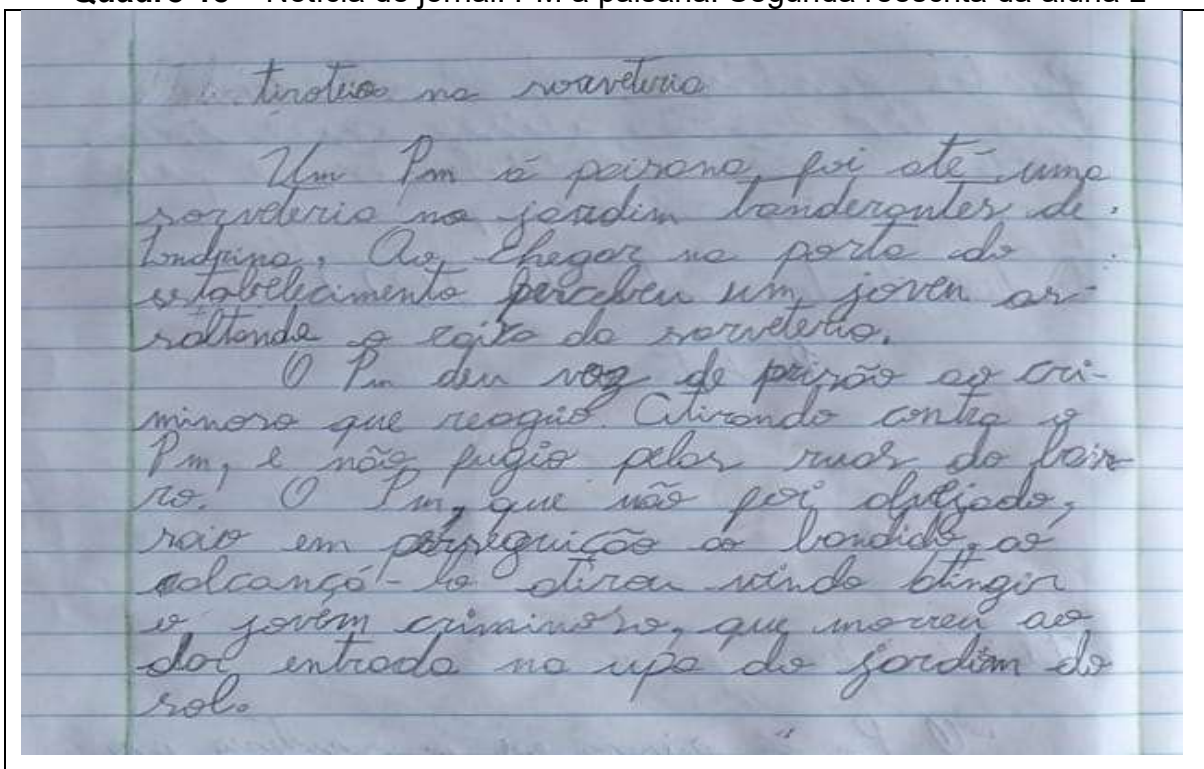 Quadro 15 – Notícia de jornal: PM à paisana: Segunda reescrita da aluna 2
tiroteio na sorveteria
Um Pm à paisana, foi até uma
sorveteria no jardim banderantes de
Londrina. Ao, chegar na porta do
estabelecimento percebeu um, joven as-
saltando o caixa da sorveteria.
O Pm deu voz de prisão ao cri-
minoso que reagio. Atirando contra o
Pm, e não fugio pelas ruas do bair-
ro. O Pm, que não foi alvejado,
saio em perseguição ao bandido, ao
alcançá-lo atirou vindo atingir
o jovem criminoso, que morreu ao
dar entrada na upa do jardim do
sol.